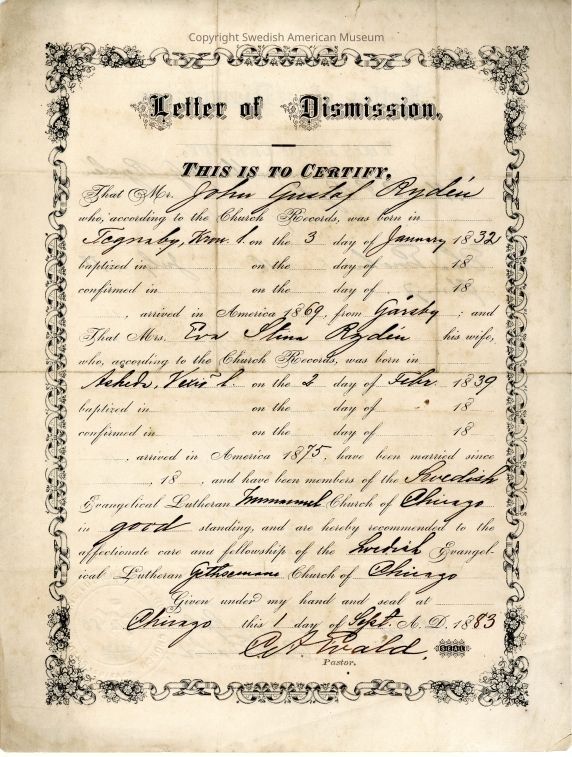 Copyright Swedish American Museum
Letter of Dismission,
THIS IS TO CERTIFY,
That Mr. John Gustaf Rydén
who, according to the Church Records, was born in
Tegnaby, Kron. l. on the 3 day of January 1832
baptized in on the day of 18
confirmed in on the day of 18
, arrived in America 1869, from Gårdsby ; and
That Mrs. Eva Stina Rydén his wife,
who, according to the Church Records, was born in
Asheda, Vexiö l. on the 2 day of Febr. 1839
baptized in on the day of 18
confirmed in on the day of 18
, arrived in America 1875, have been married since
, 18 , and have been members of the Swedish
Evangelical Lutheran Immanuel Church of Chicago
in good standing, and are hereby recommended to the
affectionate care and fellowship of the Swedish Evangel-
ical Lutheran Gethsemane Church of Chicago
Given under my hand and seal at
Chicago this 1 day of Sept. A. D. 1883
C. A. Evald.
SEAL
Pastor.